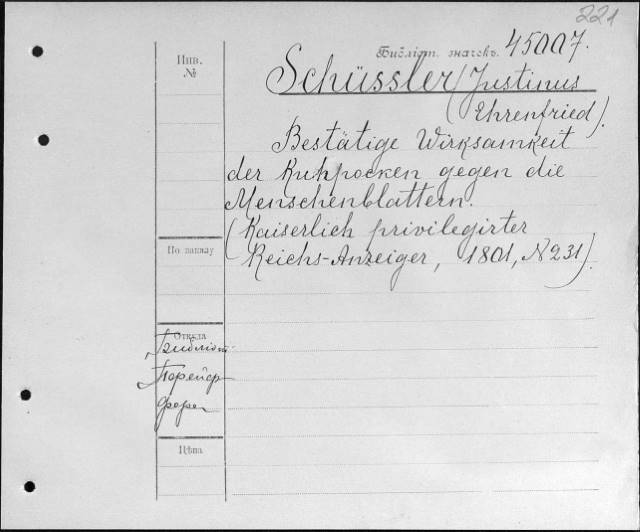 221
Бібліот. значекъ. 45007.
Инв.
№
Schüssler (Justinus
Ehrenfried).
Bestätige Wirksamkeit
der Kuhpocken gegen die
Menschenblattern.
(Kaiserlich privilegirter
Reichs-Anzeiger, 1801, N 231).
По заказу
Откуда
Библіот.
Цѣна